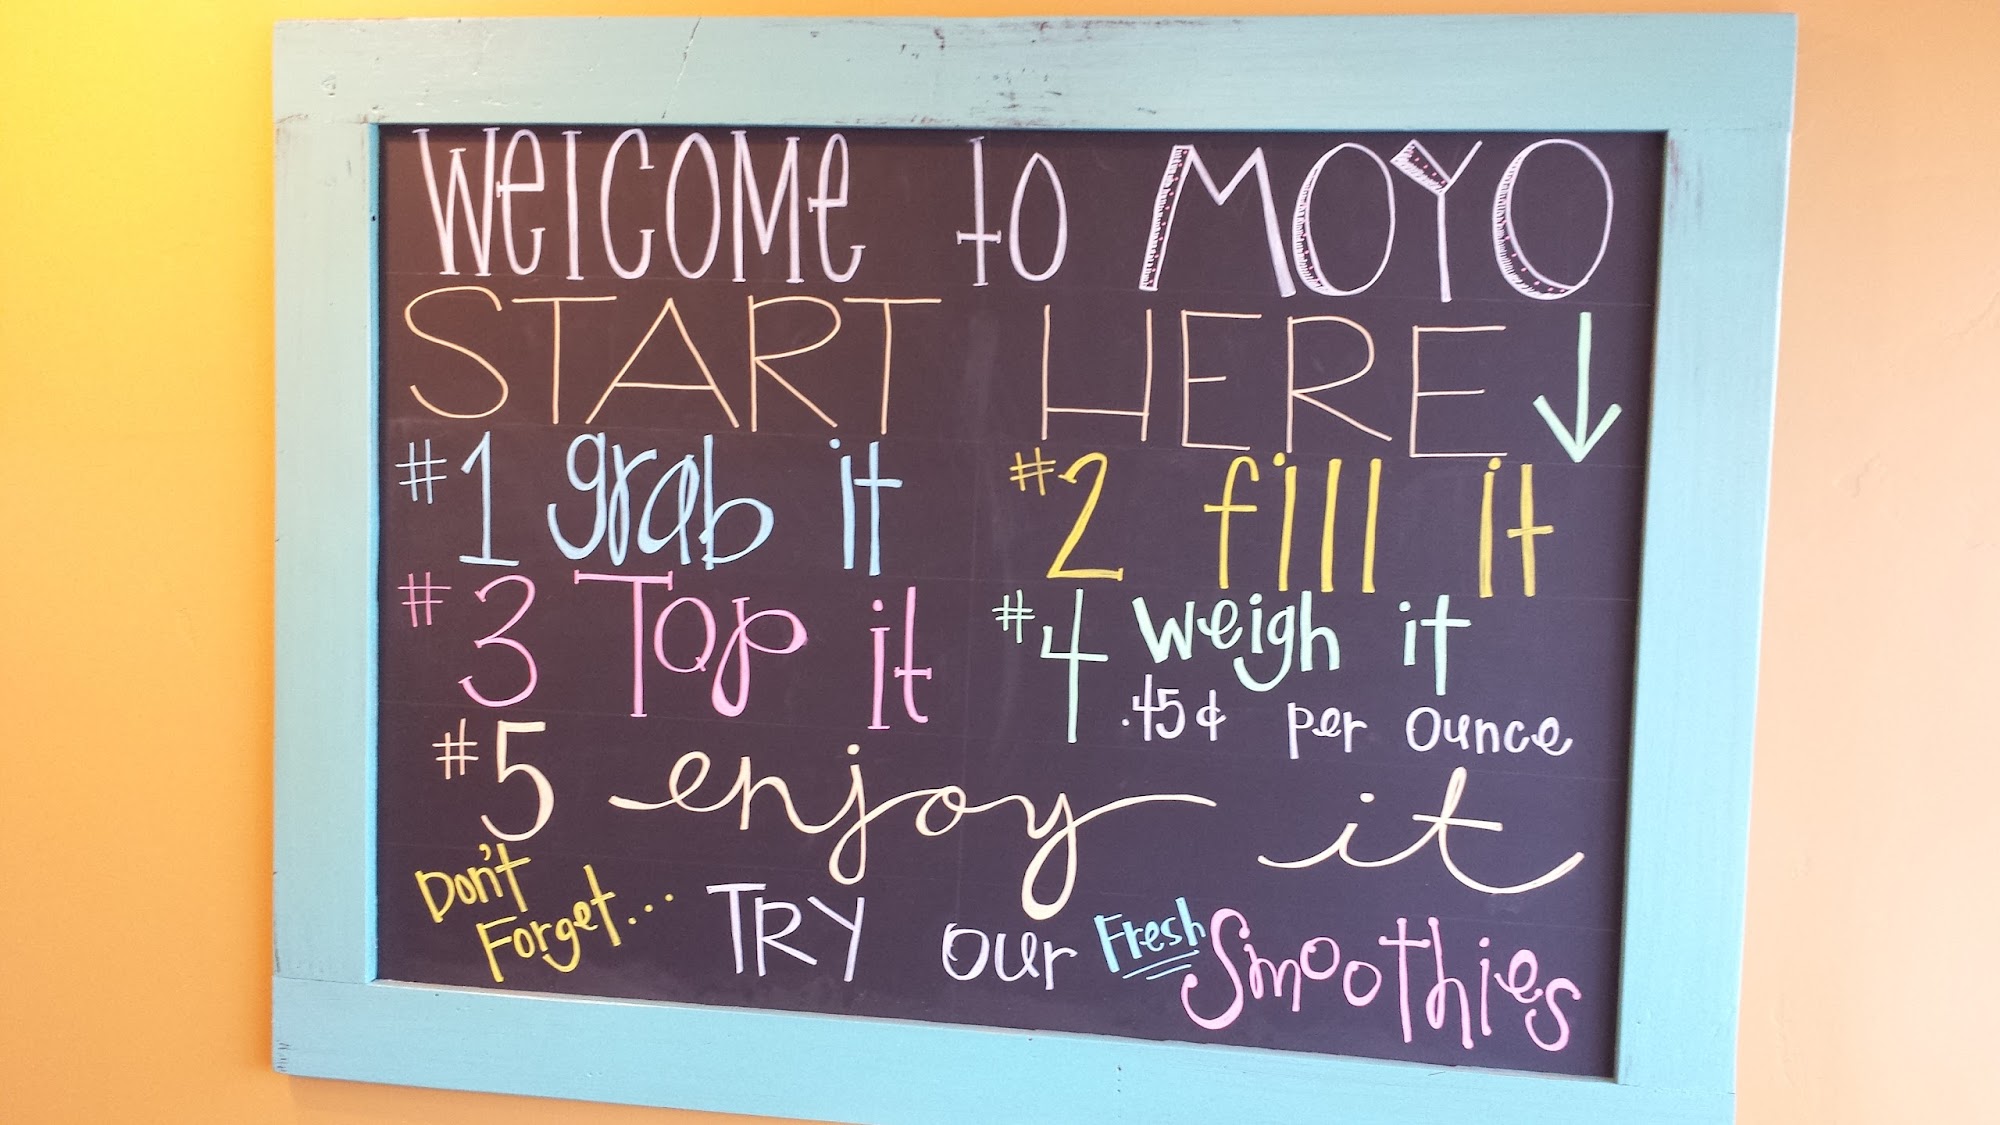 Welcome to MOYO
START HERE ↓
#1 grab it #2 fill it
#3 Top it #4 weigh it
.45¢ per ounce
#5 enjoy it
Don't Forget... TRY our Fresh Smoothies